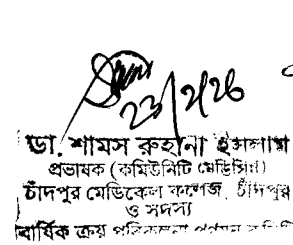 ২৩/২/২৬
ডা. শামস রুহানা ইসলাম
প্রভাষক (কমিউনিটি মেডিসিন)
চাঁদপুর মেডিকেল কলেজ, চাঁদপুর
ও সদস্য
বার্ষিক ক্রয় পরিকল্পনা প্রণয়ন কমিটি